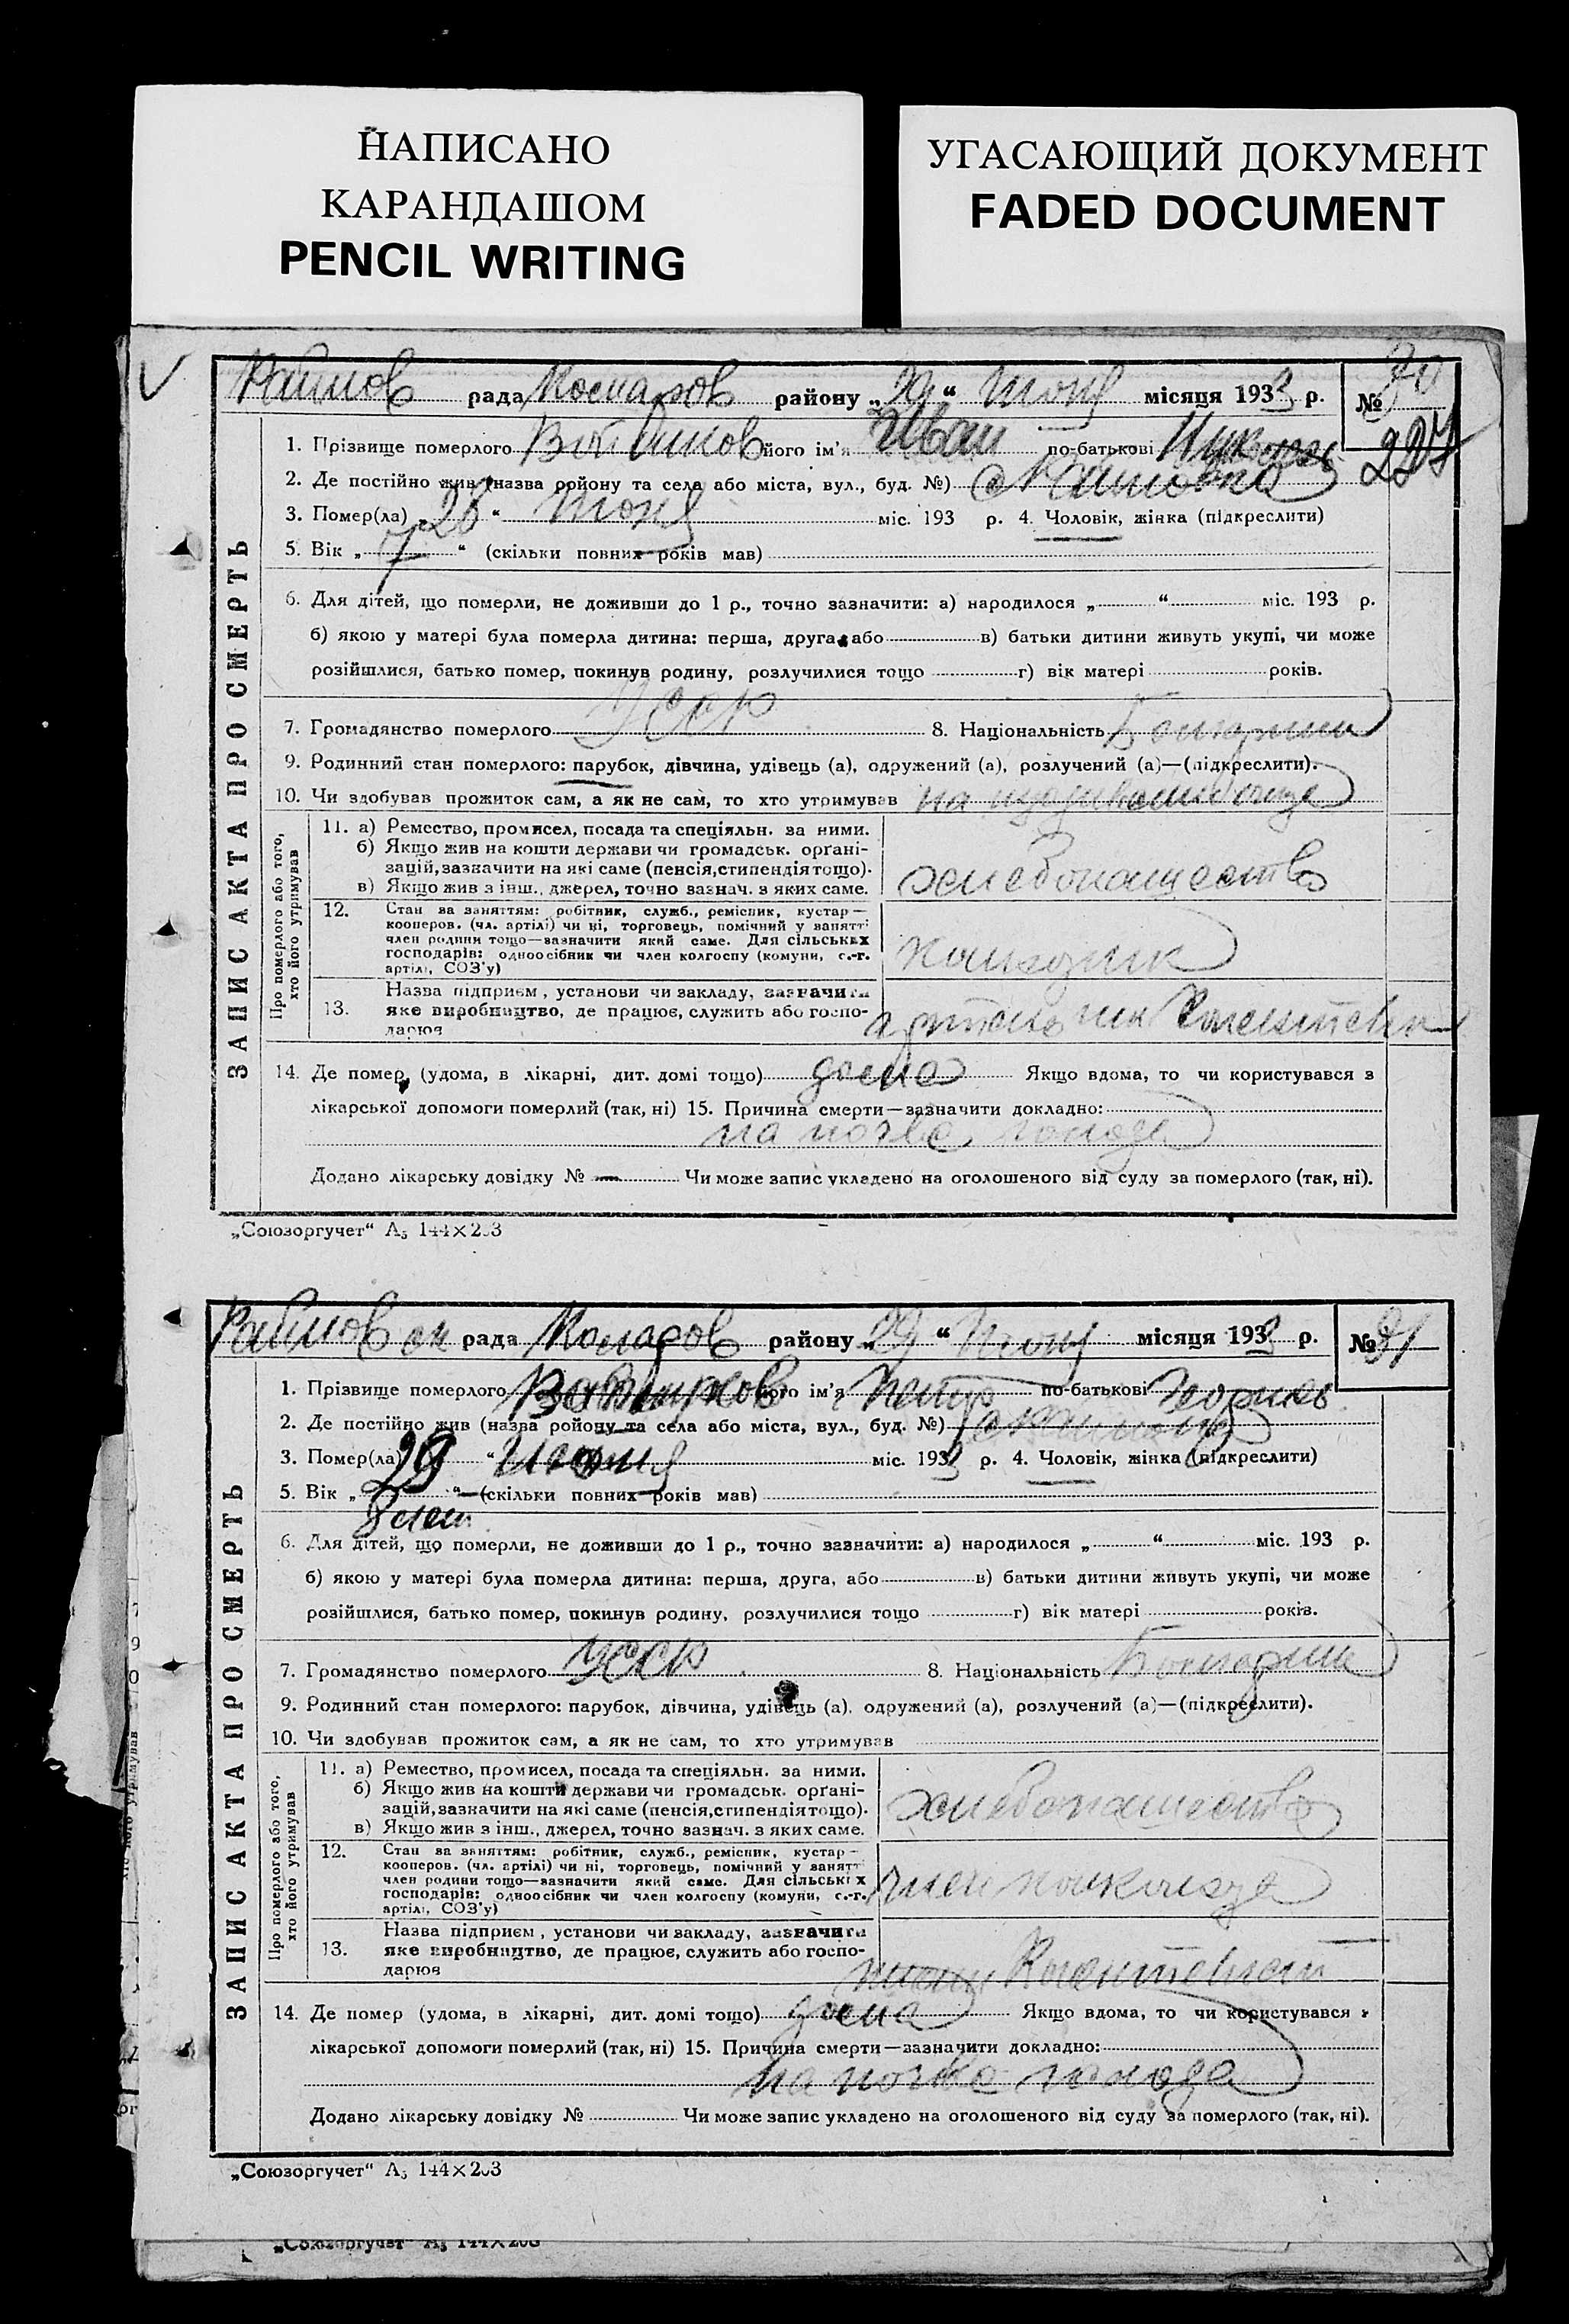 НАПИСАНО
КАРАНДАШОМ
PENCIL WRITING
УГАСАЮЩИЙ ДОКУМЕНТ
FADED DOCUMENT
рада району „29“ місяця 1933 р. № 70
227
ЗАПИС АКТА ПРО СМЕРТЬ
1. Прізвище померлого його ім'я Иван по-батькові
2. Де постійно жив (назва району та села або міста, вул., буд. №) с
3. Помер(ла) „28“ июня міс. 193 р. 4. Чоловік, жінка (підкреслити)
5. Вік „7“ (скільки повних років мав)
6. Для дітей, що померли, не доживши до 1 р., точно зазначити: а) народилося „ “ міс. 193 р.
б) якою у матері була померла дитина: перша, друга, або в) батьки дитини живуть укупі, чи може
розійшлися, батько помер, покинув родину, розлучилися тощо г) вік матері років.
7. Громадянство померлого УССР 8. Національність Болгарин
9. Родинний стан померлого: парубок, дівчина, удівець (а), одружений (а), розлучений (а)—(підкреслити).
10. Чи здобував прожиток сам, а як не сам, то хто утримував на
Про померлого або того,
хто його утримував
11. а) Ремество, промисел, посада та спеціяльн. за ними.
б) Якщо жив на кошти держави чи громадськ. орґані-
зацій, зазначити на які саме (пенсія, стипендія тощо).
в) Якщо жив з інш., джерел, точно зазнач. з яких саме.
хлебопашество
12. Стан за заняттям: робітник, служб., ремісник, кустар—
кооперов. (чл. артілі) чи ні, торговець, помічний у занятті
член родини тощо—зазначити який саме. Для сільських
господарів: одноосібник чи член колгоспу (комуни, с.-г.
артілі, СОЗ'у)
колхозник
13. Назва підприєм., установи чи закладу, зазначити
яке виробництво, де працює, служить або госпо-
дарює
14. Де помер, (удома, в лікарні, дит. домі тощо) дома Якщо вдома, то чи користувався з
лікарської допомоги померлий (так, ні) 15. Причина смерти—зазначити докладно:
на почве голода
Додано лікарську довідку № — Чи може запис укладено на оголошеного від суду за померлого (так, ні).
„Союзоргучет“ А5 144×203
рада району „29“ Июня місяця 1933 р. № 71
ЗАПИС АКТА ПРО СМЕРТЬ
1. Прізвище померлого його ім'я Петр по-батькові
2. Де постійно жив (назва району та села або міста, вул., буд. №) с
3. Помер(ла) „29“ Июня міс. 1933 р. 4. Чоловік, жінка (підкреслити)
5. Вік „8 лет“ (скільки повних років мав)
6. Для дітей, що померли, не доживши до 1 р., точно зазначити: а) народилося „ “ міс. 193 р.
б) якою у матері була померла дитина: перша, друга, або в) батьки дитини живуть укупі, чи може
розійшлися, батько помер, покинув родину, розлучилися тощо г) вік матері років.
7. Громадянство померлого УССР 8. Національність Болгарин
9. Родинний стан померлого: парубок, дівчина, удівець (а), одружений (а), розлучений (а)—(підкреслити).
10. Чи здобував прожиток сам, а як не сам, то хто утримував
Про померлого або того,
хто його утримував
11. а) Ремество, промисел, посада та спеціяльн. за ними.
б) Якщо жив на кошти держави чи громадськ. орґані-
зацій, зазначити на які саме (пенсія, стипендія тощо).
в) Якщо жив з інш., джерел, точно зазнач. з яких саме.
хлебопашество
12. Стан за заняттям: робітник, служб., ремісник, кустар—
кооперов. (чл. артілі) чи ні, торговець, помічний у занятті
член родини тощо—зазначити який саме. Для сільських
господарів: одноосібник чи член колгоспу (комуни, с.-г.
артілі, СОЗ'у)
член
13. Назва підприєм., установи чи закладу, зазначити
яке виробництво, де працює, служить або госпо-
дарює
14. Де помер (удома, в лікарні, дит. домі тощо) дома Якщо вдома, то чи користувався з
лікарської допомоги померлий (так, ні) 15. Причина смерти—зазначити докладно:
на почве голода
Додано лікарську довідку № Чи може запис укладено на оголошеного від суду за померлого (так, ні).
„Союзоргучет“ А5 144×203
„Союзоргучет“ А5 144×203